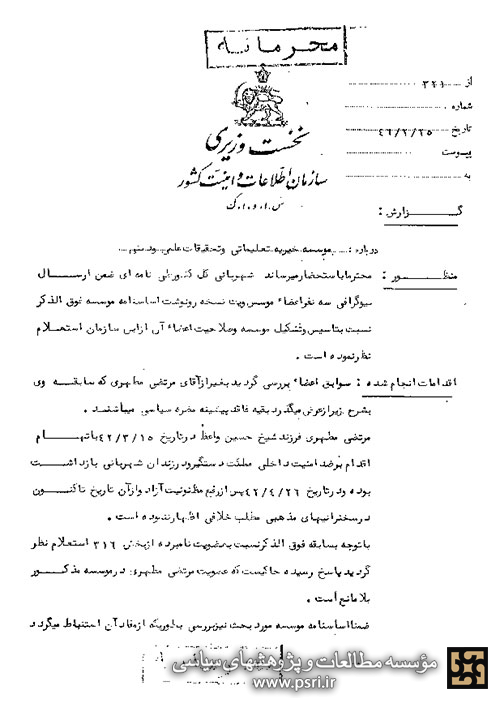 محرمانه
نخست وزیری
سازمان اطلاعات و امنیت کشور
س.ا.و.ا.ک
از ۳۲۱
شماره
تاریخ ۴۶/۲/۲۵
پیوست
به
گزارش :
درباره : موسسه خیریه تعلیماتی وتحقیقات علمی
منظور : محترما باستحضار میرساند شهربانی کل کشور طی نامه ای ضمن ارسال
بیوگرافی سه نفر اعضاء موسس ویک نسخه رونوشت اساسنامه موسسه فوق الذکر
نسبت بتاسیس وتشکیل موسسه وصلاحیت اعضاء آن ازاین سازمان استعلام
نظر نموده است .
اقدامات انجام شده : سوابق اعضاء بررسی گردید بغیر ازآقای مرتضی مطهری که سابقه وی
بشرح زیر ازعرض میگذرد بقیه فاقد پیشینه مضره سیاسی میباشند .
مرتضی مطهری فرزند شیخ حسین واعظ در تاریخ ۴۲/۳/۱۵ باتهام
اقدام بر ضد امنیت داخلی مملکت دستگیر ودر زندان شهربانی بازداشت
بوده ودر تاریخ ۴۲/۴/۲۶ پس از رفع مظنونیت آزاد وازآن تاریخ تاکنون
در سخنرانیهای مذهبی مطلب خلافی اظهار ننموده است .
باتوجه بسابقه فوق الذکر نسبت به عضویت نامبرده از بخش ۳۱۶ استعلام نظر
گردید پاسخ رسیده حاکیست که عضویت مرتضی مطهری در موسسه مذکور
بلا مانع است .
ضمنا اساسنامه موسسه مورد بحث نیز بررسی بطوریکه از مفاد آن استنباط میگردد
مؤسسه مطالعات و پژوهشهای سیاسی
www.psri.ir